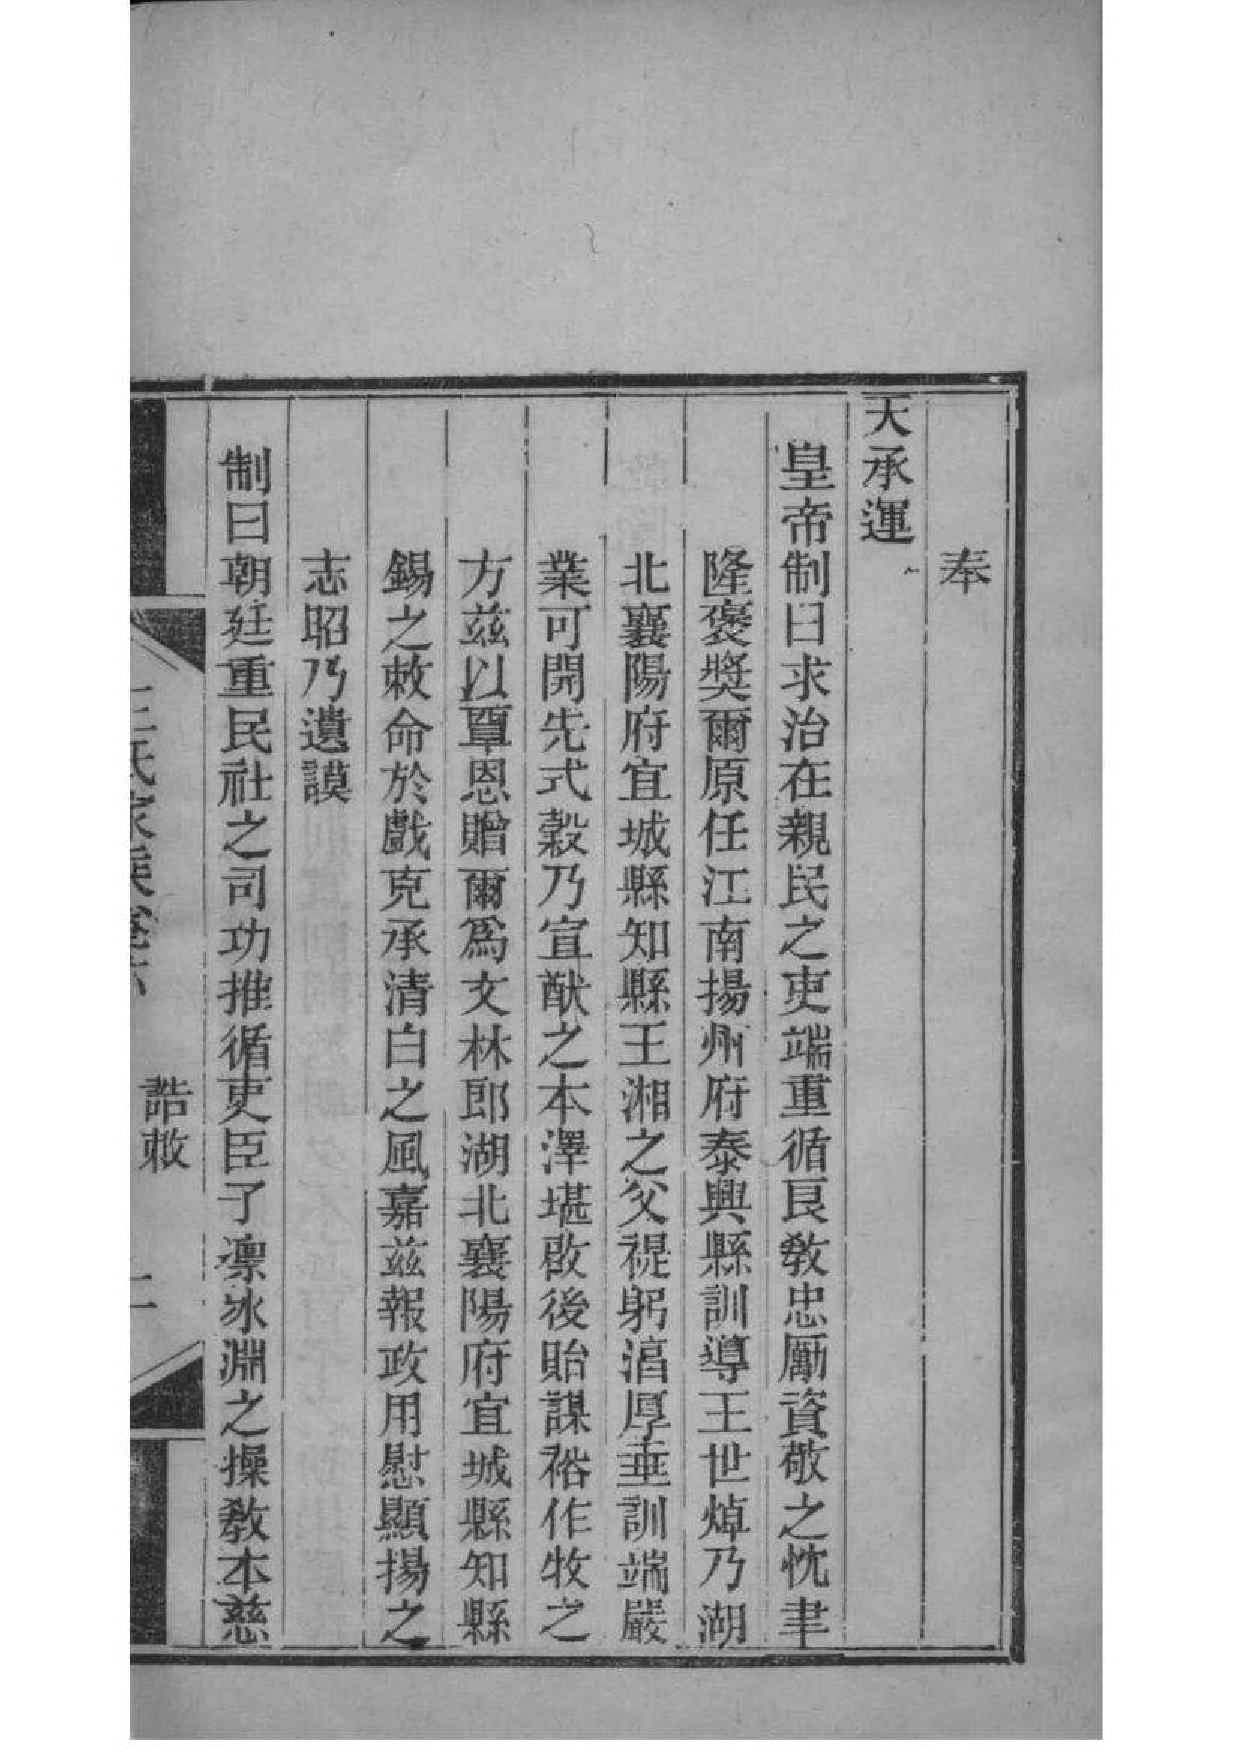 奉
天承運
皇帝制曰求治在親民之吏端重循良敎忠勵資敬之忱聿
隆褒獎爾原任江南揚州府泰興縣訓導王世焯乃湖
北襄陽府宜城縣知縣王湘之父禔躬淳厚垂訓端嚴
業可開先式穀乃宣猷之本澤堪啟後貽謀裕作牧之
方兹以覃恩贈爾爲文林郎湖北襄陽府宜城縣知縣
錫之敕命於戲克承清白之風嘉兹報政用慰顯揚之
志昭乃遺謨
制曰朝廷重民社之司功推循吏臣子凛冰淵之操敎本慈
王氏家乘卷六
誥敕